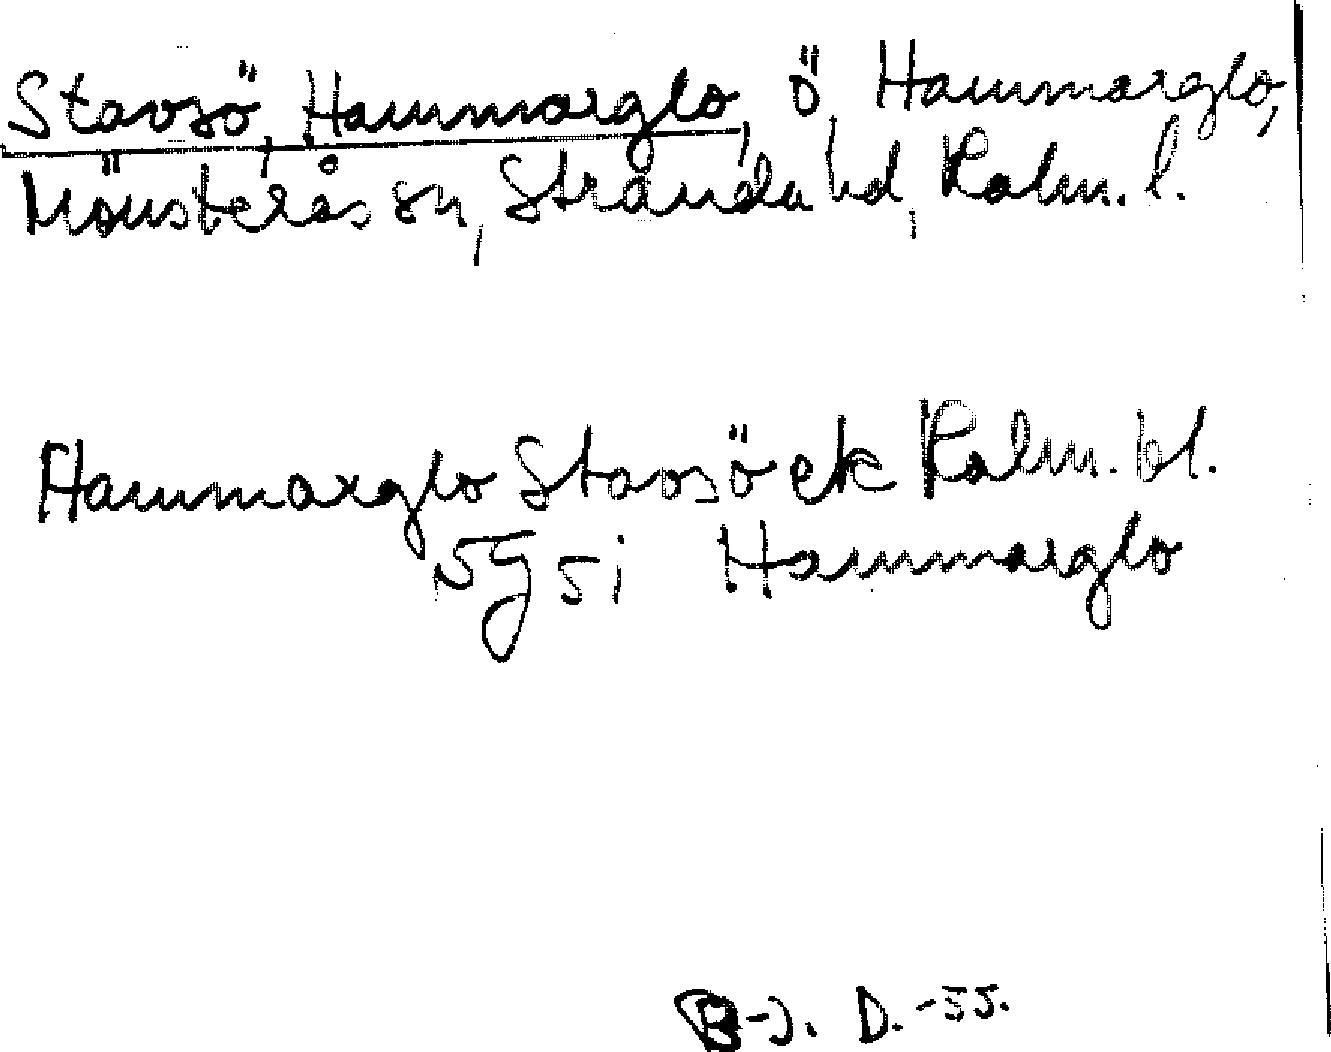 Stavsö, Hammarglo, ö, Hammarglo,
Mönsterås sn, Stranda hd, Kalm. l.
Hammarglo Stavsö ek Kalm. bl.
5g5i Hammarglo
B-J. D. -55.